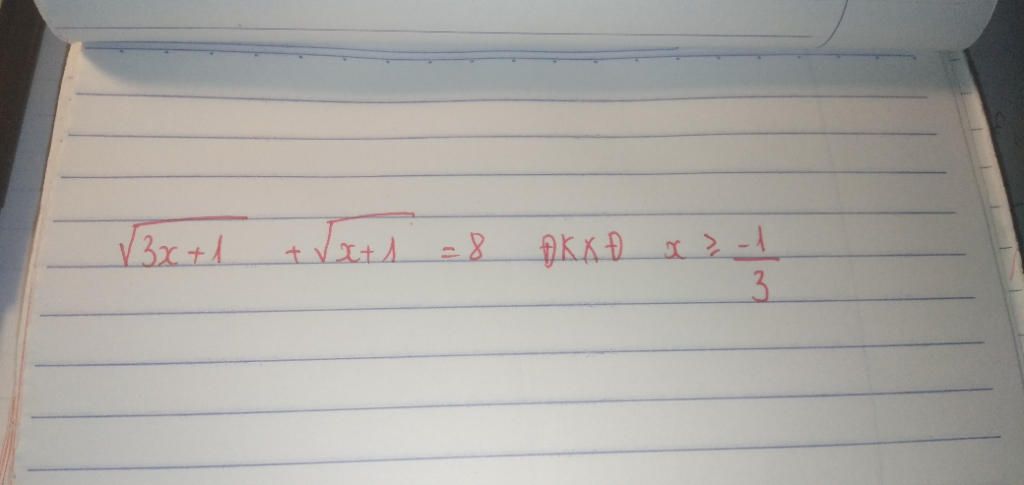 √3x+1 + √x+1 = 8 ĐKXĐ x ≥ -1/3